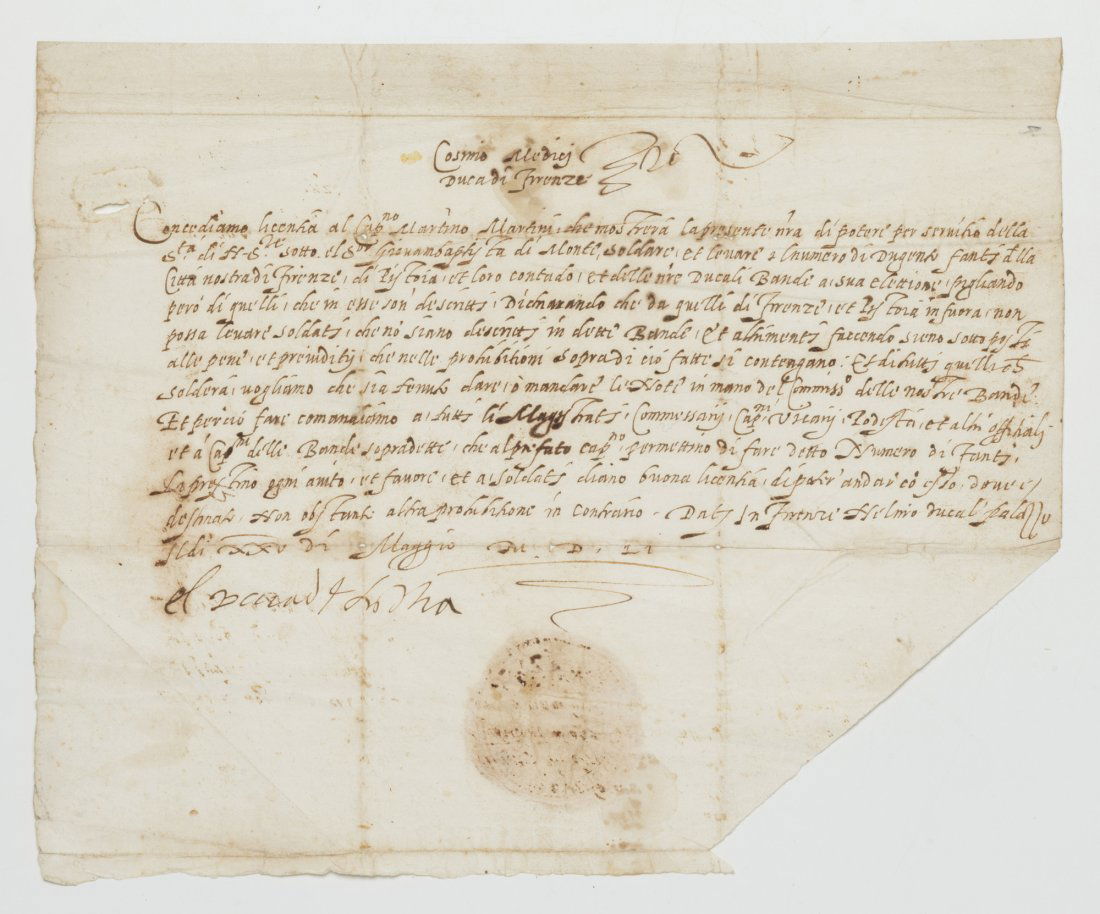 Cosmo Medici
Duca di Firenze
Concediamo licentia al Capno Martino Martini, che mostrerà la presente nra di potere per servitio della
Sta di N. Sre sotto el Sor Giovambaptista di Monte, Soldare, et levare el numero di Dugento fanti della
Città nostra di Firenze, di Pistoia, et loro contado, et delle nre Ducali Bande a sua elettione, pigliando
però di quelli, che in esse son descritti, Dichiarando che da quelli di Firenze, et Pistoia in fuora, non
possa levare soldati, che nō siano descritti in dette Bande, Et altrimenti faccendo sieno sottoposti
alle pene, et preiuditij, che nelle prohibitioni sopra di ciò fatte si contengano: Et di tutti quelli
soldera, vogliamo che sia tenuto dare, o mandare le Note in mano del Commisso delle nostre Bande.
Et perciò fare comandiamo a tutti li Magistrati, Commessarij, Capni Vicarij, Podestà, et altri offitiali
et à Capni delle Bande sopradette, che al prefato capno permettino di fare detto Numero di fanti,
Li prestino ogni aiuto, et favore, et a soldati diano buona licentia, di poter andar cō esso, dove è
destinato, Non obstante altra prohibitione in contrario. Datj In Firenze Nel nro ducal palazzo
Il dì XXV di Maggio D. LI
el